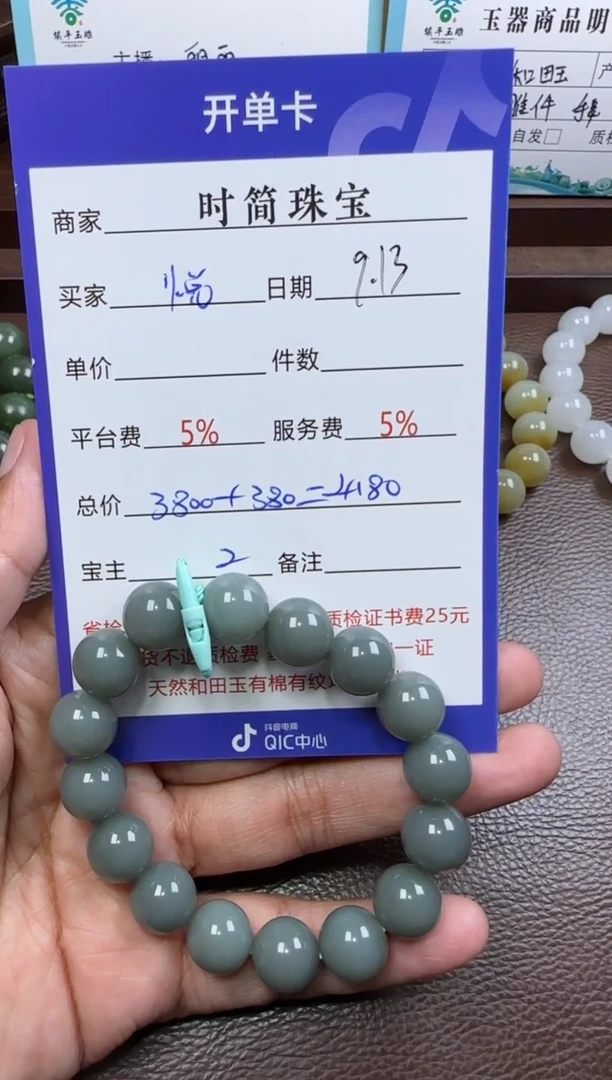 镇平玉雕
主播
镇平玉雕
玉器商品明
和田玉 产
雕件
自发□ 质检
开单卡
商家 时简珠宝
买家 日期 9.13
单价 件数
平台费 5% 服务费 5%
总价 3800+380=4180
宝主 2 备注
省检 质检证书费25元
货不退质检费 一证
天然和田玉有棉有纹
抖音电商
QIC中心